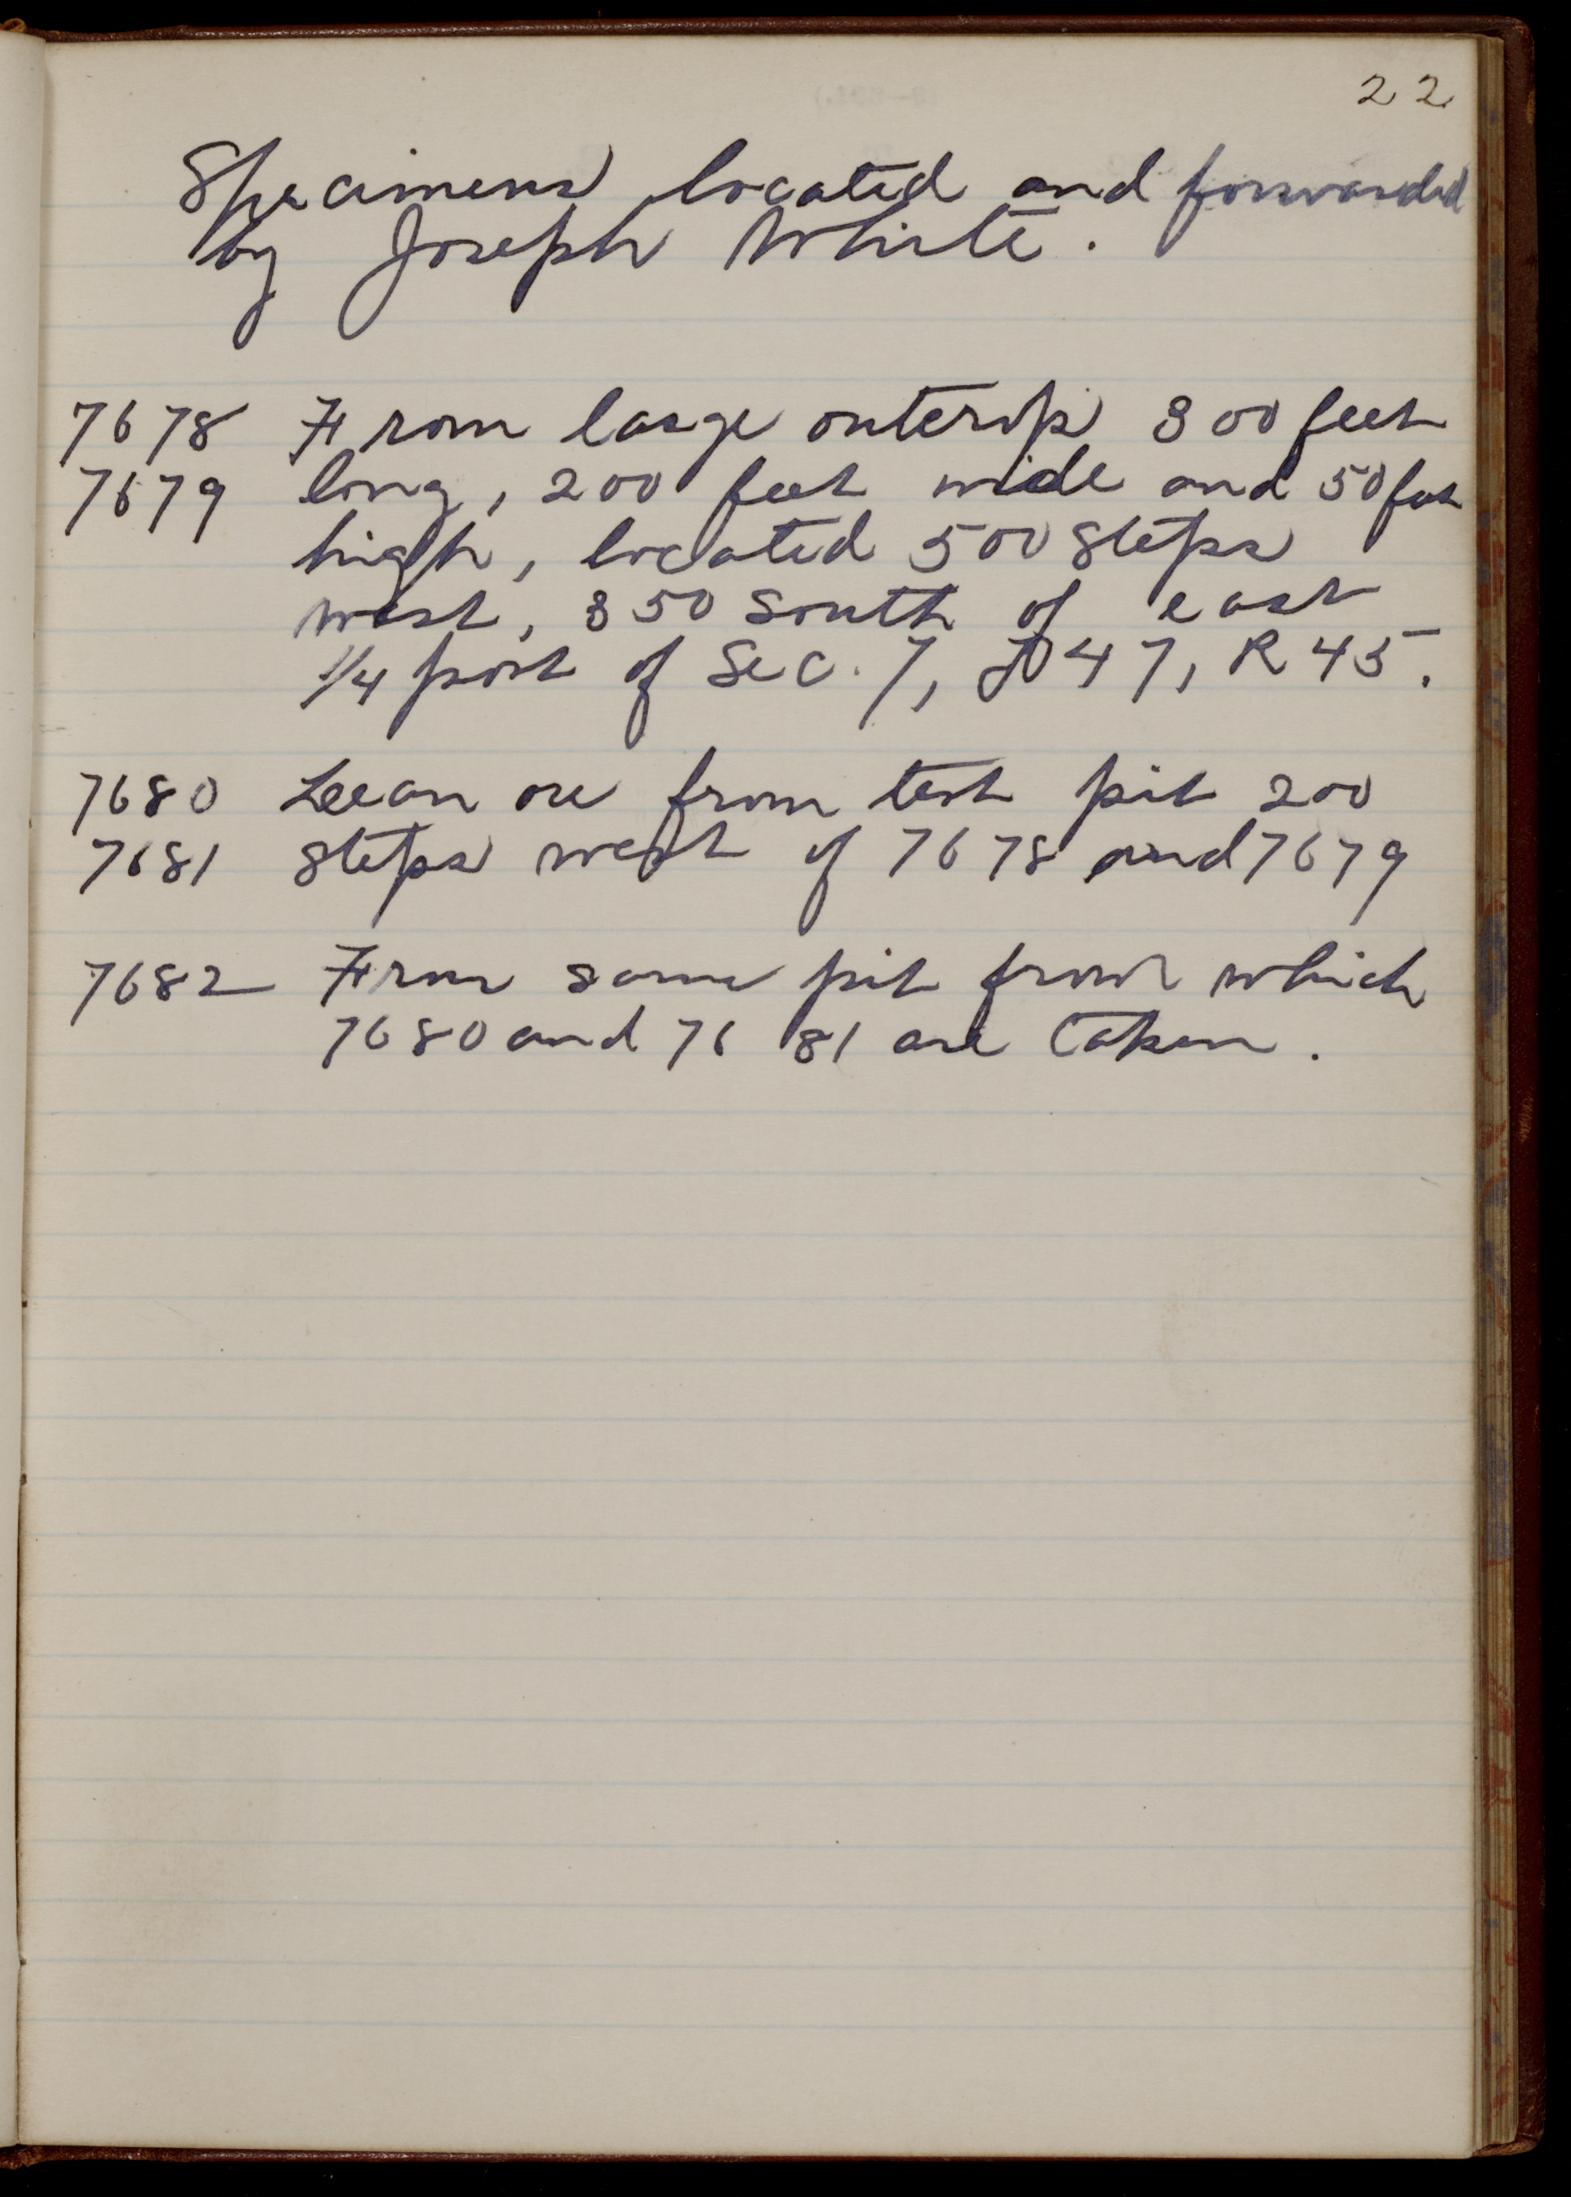 22
Specimens located and forwarded
by Joseph White.
7678 From large outcrop 300 feet
7679 long, 200 feet wide and 50 feet
high, located 500 steps
west, 350 south of east
1/4 post of Sec. 7, T 47, R 45.
7680 Lean ore from test pit 200
7681 steps west of 7678 and 7679
7682 From same pit from which
7680 and 7681 are taken.